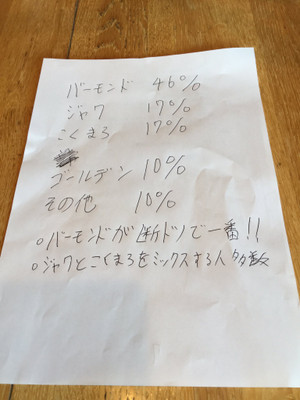 バーモンド 46%
ジャワ 17%
こくまろ 17%
ゴールデン 10%
その他 10%
○バーモンドが断トツで一番!!
○ジャワとこくまろをミックスする人多数